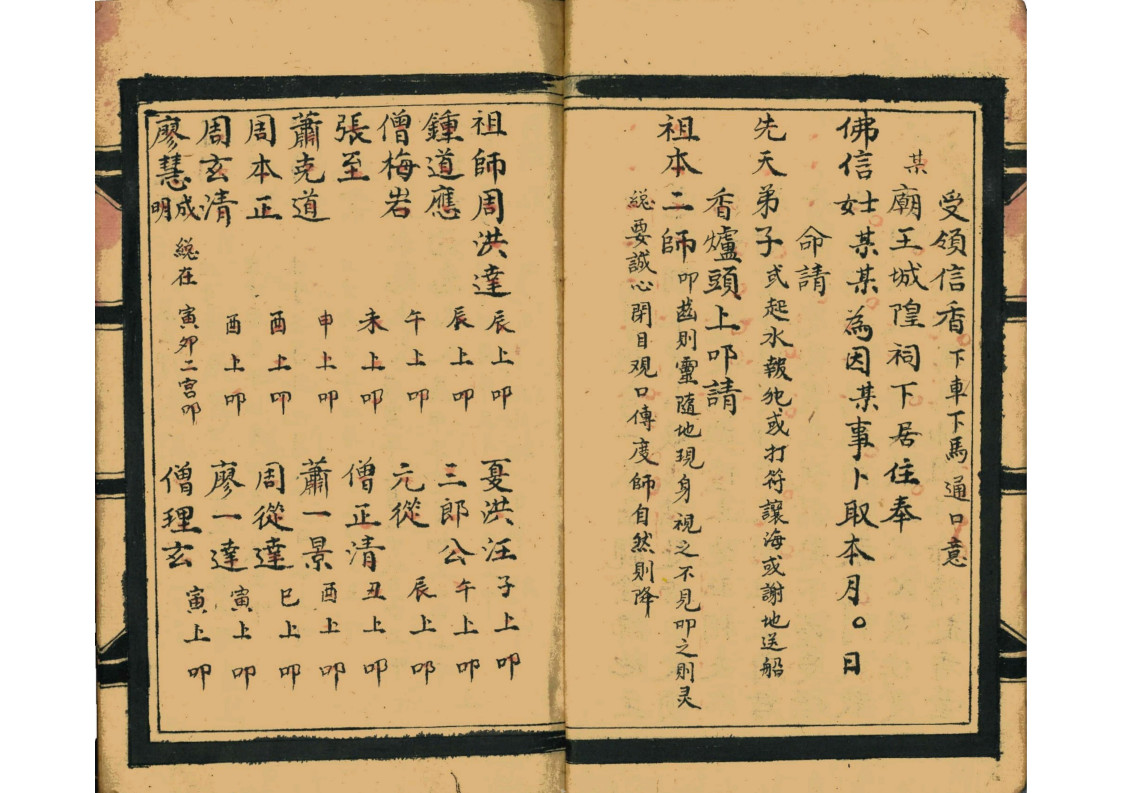 受領信香下車下馬通口意
某廟王城隍祠下居住奉
佛信士女某某為因某事卜取本月○日
命請
先天弟子或起水報𤞏或打符讓海或謝地送船
香爐頭上叩請
祖本二師叩齒則靈隨地現身視之不見叩之則灵
總要誠心閉目观口傳度師自然則降
祖師周洪達辰上叩 夏洪汪子上叩
鍾道應辰上叩 三郎公午上叩
僧梅岩午上叩 元從辰上叩
張至未上叩 僧正清丑上叩
蕭克道申上叩 蕭一景酉上叩
周本正酉上叩 周從達巳上叩
周玄清酉上叩 廖一達寅上叩
廖慧成明總在寅卯二宮叩 僧理玄寅上叩